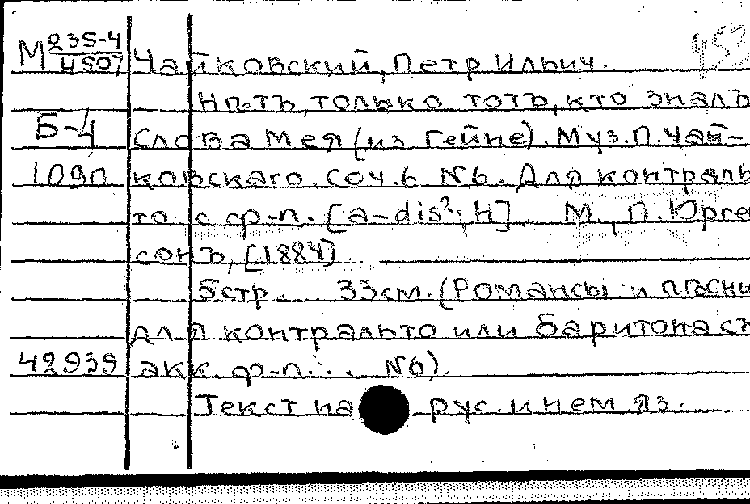 М 235-4
4507 Чайковский, Петр Ильич.
Нѣтъ, только тотъ, кто зналъ
Б-4 Слова Мея (из Гейне). Муз. П. Чай-
109п ковскаго. Соч. 6 №6. Для контраль
то с ф-п. [a-dis²; h] М., П. Юрген
сонъ, [1884]
5стр. 33см. (Романсы и пѣсни
для контральто или баритона съ
42939 акк. ф-п. . . №6).
Текст на рус. и нем яз.